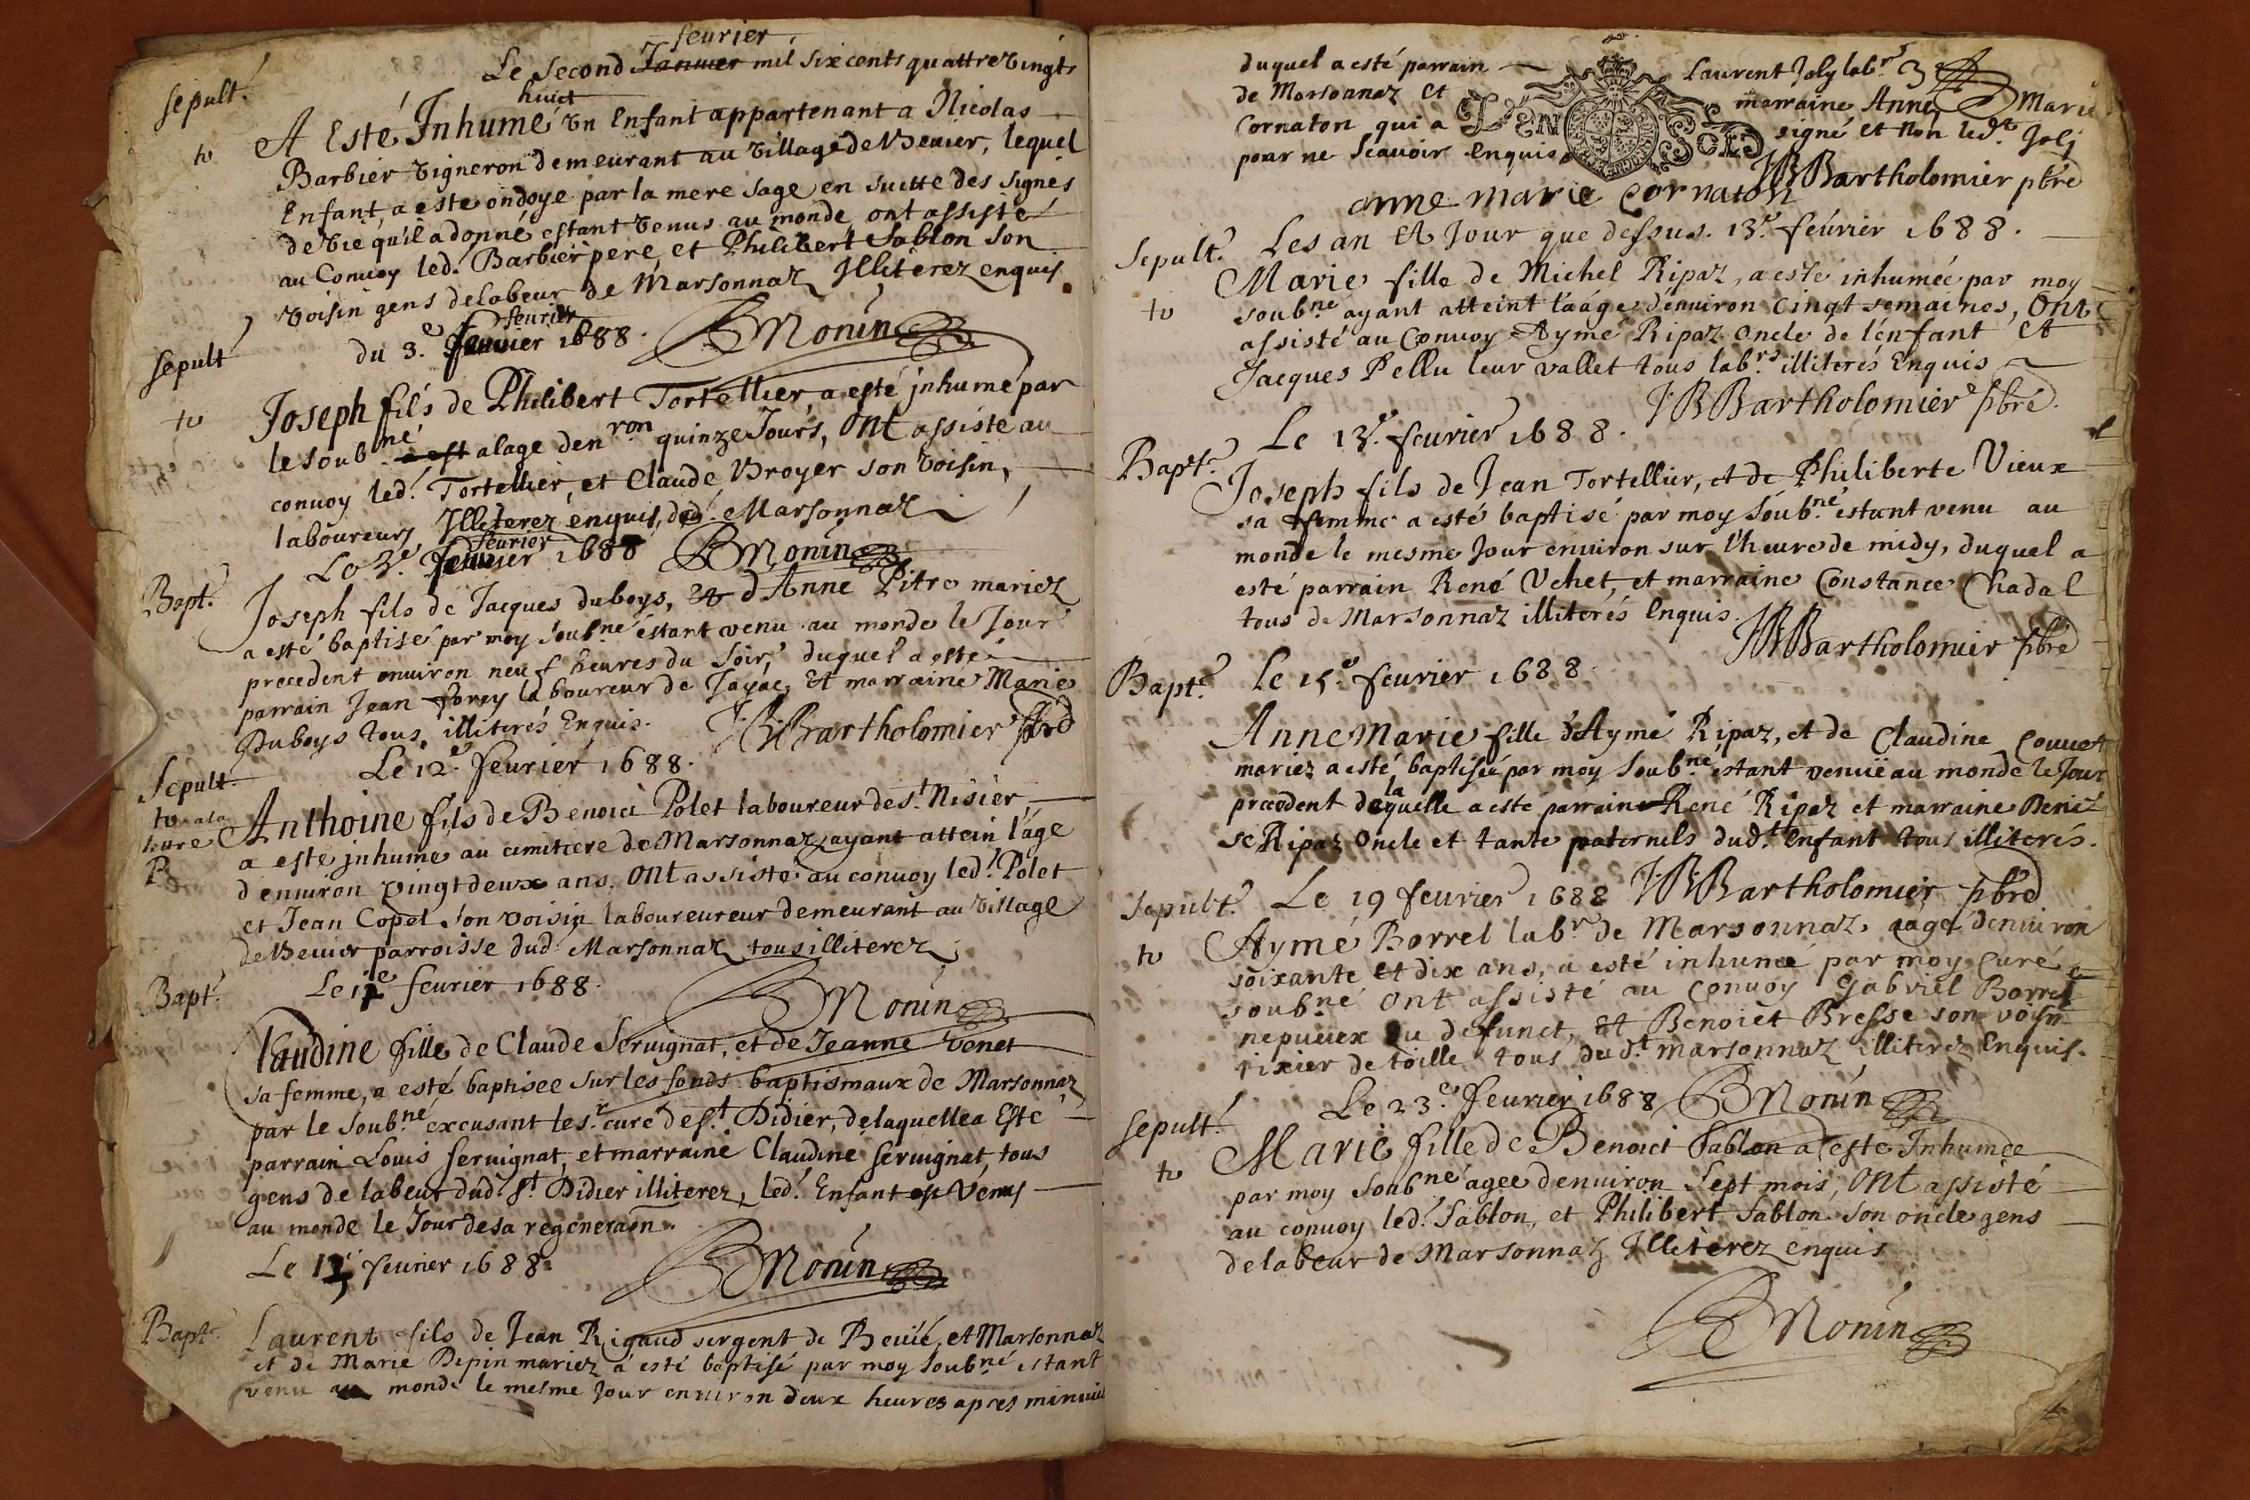 feurier
Le second Januier mil six cents quattre vingts
huict
sepult.
A Esté Inhumé vn Enfant appartenant a Nicolas
Barbier vigneron demeurant au village de Beuier, lequel
Enfant, a esté ondoye par la mere sage en suitte des signes
de vie qu'il a donné estant venus au monde, ont assisté
au Conuoy led. Barbier pere, et Philibert Sablon son
voisin gens de labeur de Marsonnaz Illiterez enquis
BMonin
sepult
feurier
du 3.e Januier 1688.
Joseph fils de Philibert Tortellier, a esté jnhumé par
le soub.né a est alage denuron quinze Jours, Ont assisté au
conuoy led. Tortellier, et Claude Broyer son voisin,
laboureurs, Illeterez enquis, dud. Marsonnaz
feurier
Le 3.e Januier 1688 BMonin
Bapt.
Joseph fils de Jacques duboys, et d'Anne Pitre mariez
a esté baptisé par moy soub.né estant venu au monde le Jour
precedent enuiron neuf heures du soir, duquel a esté
parrain Jean forey laboureur de Jayac, et marraine Marie
Duboys tous illiterés Enquis. JBBartholomier pbre
Sepult.
Le 12.e feurier 1688.
Anthoine fils de Benoict Polet laboureur de s.t Nisier,
a esté jnhumé au cimitiere de Marsonnaz, ayant attein l'age
d'enuiron vingt deux ans, Ont assisté au conuoy led.t Polet
et Jean Copet son voisin laboureureur demeurant au village
de Beuier parroisse dud. Marsonnaz tous illiterez,
Bapt.
Le 12e feurier 1688.
BMonin
Claudine fille de Claude Seruignat, et de Jeanne Venet
sa femme, a esté baptisee sur les fonds baptismaux de Marsonnaz
par le soub.né excusant le s.r curé de s.t Didier, de laquelle a Esté
parrain Louis seruignat, et marraine Claudine seruignat, tous
gens de labeur dud. s.t Didier illiterez, led. Enfant est Venus
au monde le Jour de sa regeneraon.
Le 13 feurier 1688. BMonin
Bapt.
Laurent fils de Jean Rigaud sergent de Beuié, et Marsonnaz
et de Marie Depin mariez a esté baptisé par moy soub.né estant
venu au monde le mesme Jour enuiron deux heures apres minuict
duquel a esté parrain Laurent Joly lab.r
de Marsonnaz et marraine Anne Marie
Cornaton qui a signé et non led.t Joly
pour ne scauoir enquis
JBBartholomier pbre
anne marie cornaton
Sepult.
Les an et Jour que dessus. 13.e feúrier 1688.
Marie fille de Michel Ripaz, a esté inhumée par moy
soub.né ayant atteint l'aáge d'enuiron Cinqt semaines, Ont
assisté au Conuoy Aymé Ripaz Oncle de l'enfant et
Jacques Pellu leur vallet tous lab.rs illiterés Enquis
JBBartholomier pbre.
Bapt.
Le 13.e feurier 1688.
Joseph fils de Jean Tortellier, et de Philiberte Vieux
sa femme a esté baptisé par moy soub.né estant venu au
monde le mesme Jour enuiron sur l'heure de midy, duquel a
esté parrain René Vchet, et marraine Constance Chadal
tous de Marsonnaz illiterés Enquis.
JBBartholomier pbre
Bapt.
Le 15.e feurier 1688.
Anne Marie fille d'Aymé Ripaz, et de Claudine Couuet
mariez a esté baptisée par moy soub.né estant venuë au monde le Jour
la
precedent dequelle a esté parrain René Ripaz et marraine Denie
se Ripaz Oncle et tante paternels dud.t Enfant tous illiterés.
Sepult.
Le 19 feurier 1688 JBBartholomier pbre
Aymé Borrel lab.r de Marsonnaz, aagé d'enuiron
soixante et dix ans, a esté inhumé par moy curé
soub.né ont assisté au Conuoy Gabriel Borrel
nepueux du defunct, et Benoiet Bresse son voisin
tixier de toille tous dud.t Marsonnaz illiterez Enquis.
sepult.
Le 23.e feurier 1688 BMonin
Marie fille de Benoict Sablon a esté Inhumée
par moy soub.né agee denuiron sept mois, Ont assisté
au conuoy led.t Sablon, et Philibert Sablon son oncle gens
de labeur de Marsonnaz Illiterez enquis
BMonin